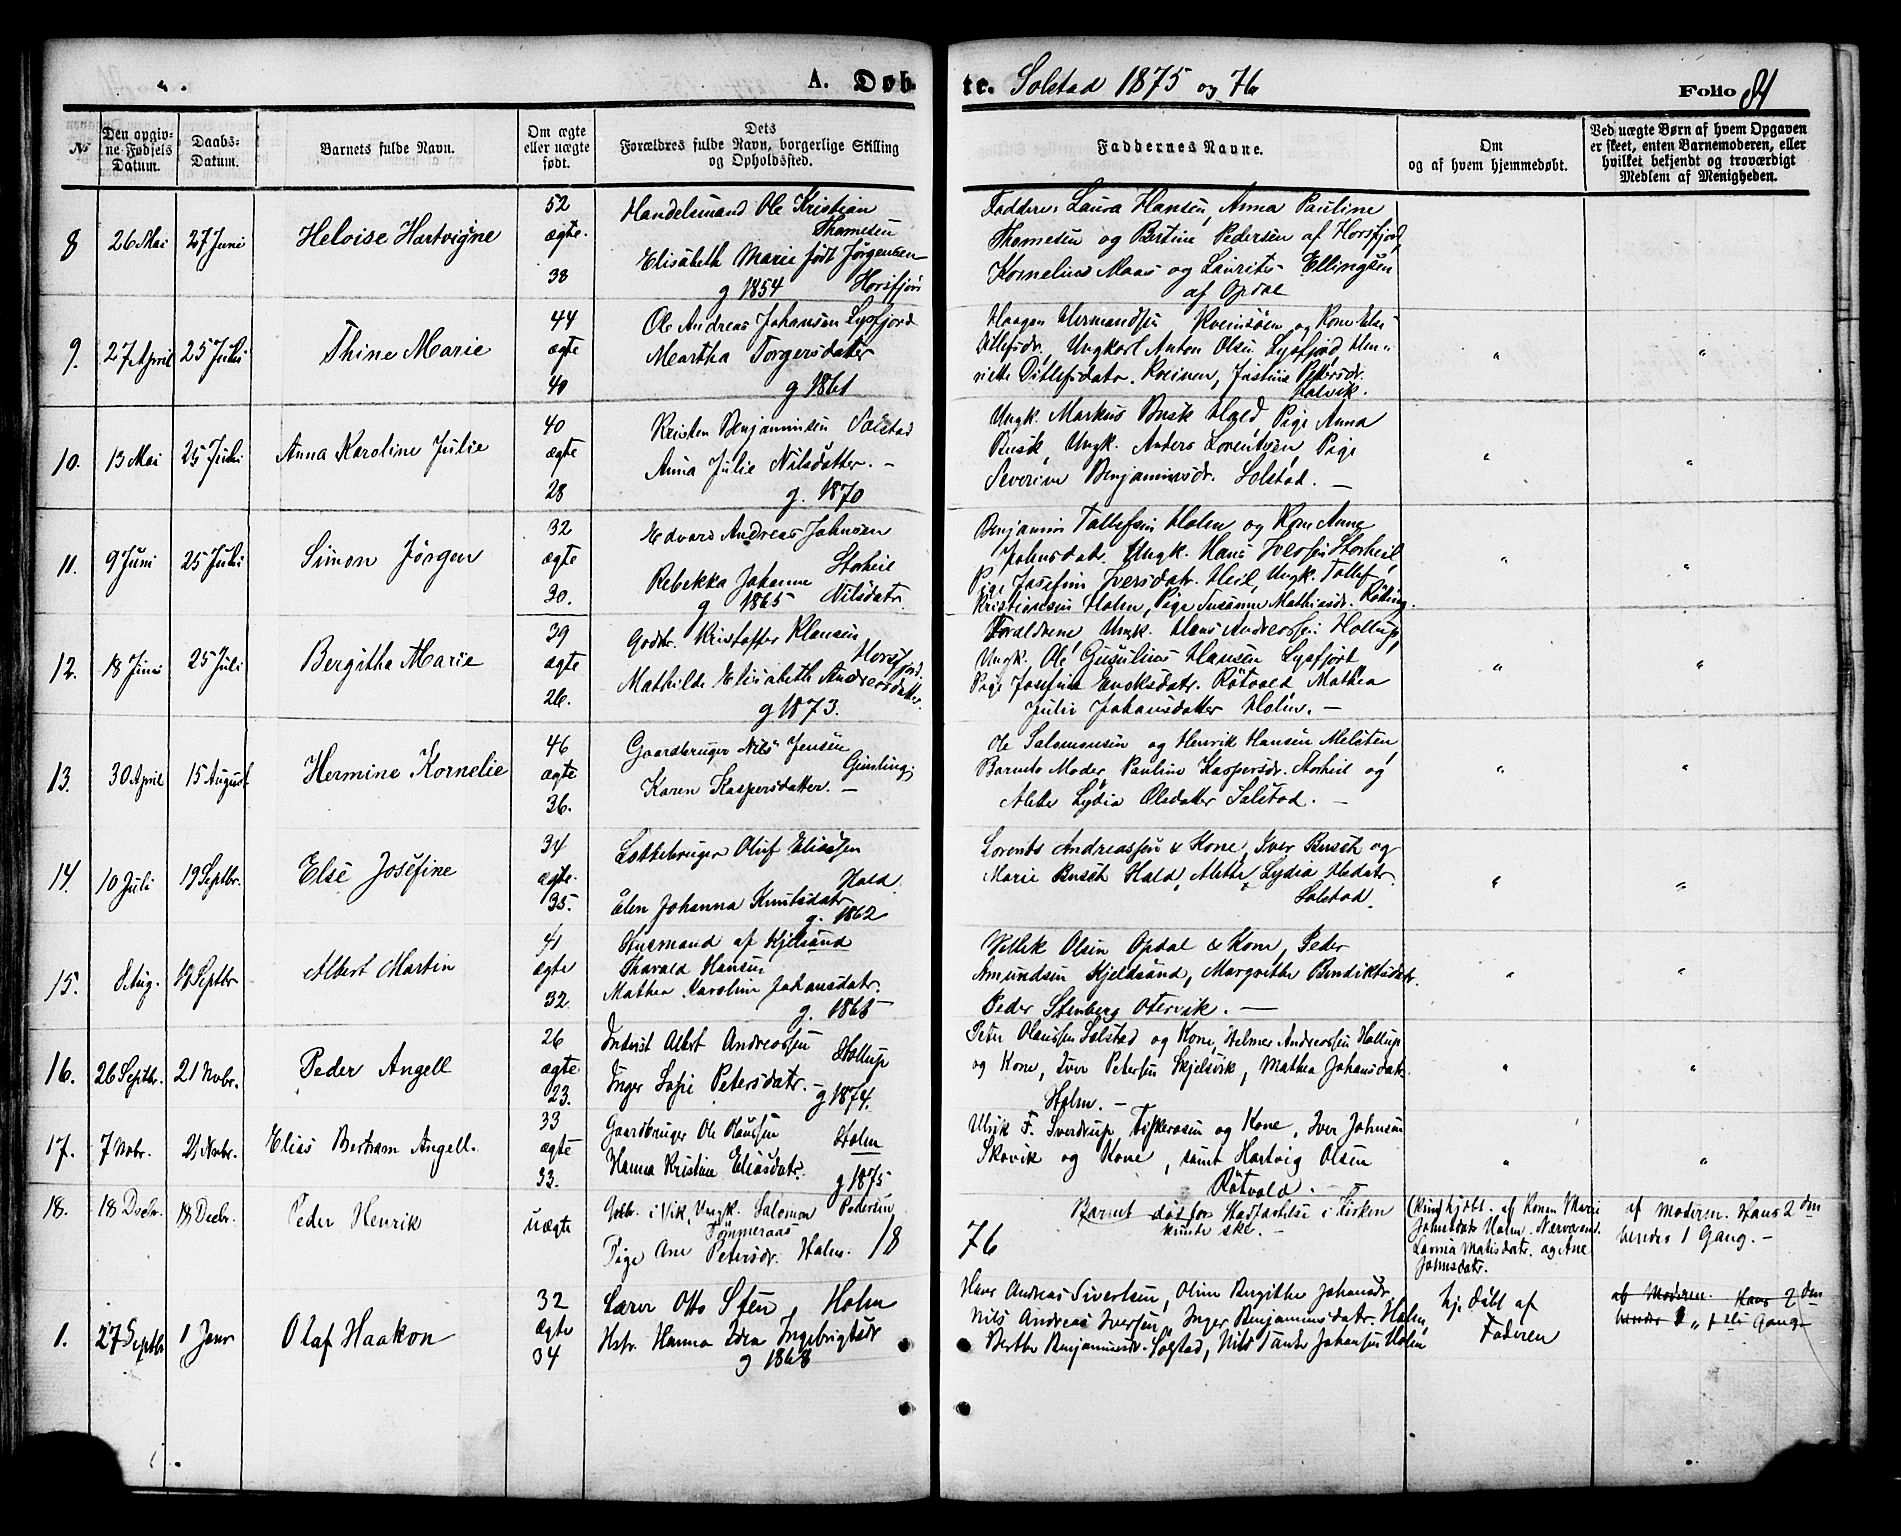 A. Døbte. Solstad 1875 og 76
Folio 84
№
Den opgivne Fødsels Datum.
Daabs-Datum.
Barnets fulde Navn.
Om ægte eller uægte født.
Dets Forældres fulde Navn, borgerlige Stilling og Opholdssted.
Faddernes Navne.
Om og af hvem hjemmedøbt.
Ved uægte Børn af hvem Opgaven er skeet, enten Barnemoderen, eller hvilket bekjendt og troværdigt Medlem af Menigheden.
8 26 Mai 27 Juni Heloise Hartvigne
52 ægte. 38
Handelsmand Ole Kristian
Thomesen
Elisabeth Marie født Jørgensen
g 1854 Horsfjord
Faddere: Laura Hansen, Anna Pauline
Thomesen og Bertine Pedersen af Horsfjord,
Kornelius Moas og Laurits Ellingsen
af Opdal
9. 27 April 25 Juli Thine Marie
44 ægte 40
Ole Andreas Johansen Lysfjord
Martha Torgersdatter
g 1861
Haagen Hermandsen Kveinsøen og Kone Else
Ditlefsdr, Ungkarl Anton Olsen Lysfjord, Hen-
riette Ditlefsdatr. Kveinen, Justine Petersdr.
10. 13 Mai 25 Juli Anna Karoline Julie
40 ægte 28
Kristen Benjaminsen Solstad
Anna Julie Nilsdatter. –
g. 1870
Ungk. Markus Busk Hald Pige Anna
Busk, Ungk. Anders Lorentsen, Pige
Severine Benjaminsdr. Solstad. –
11. 9 Juni 25 Juli Simon Jørgen
32 ægte 30.
Edvard Andreas Johnsen
Storheil
Rebekka Johanna Nilsdatr.
g 1865
Benjamin Tollefsen Holm og Kone Anne
Johnsdatr. Ungk. Hans Iversen Storheil,
Pige Josefine Iversdatr. Heil, Ungk. Tollef
Kristiansen Holm, Pige Susanne Mathiasdr.
12. 18 Juni 25 Juli Bergitha Marie
39 ægte 26.
Kristoffer Klausen
Horsfjord.
Mathilde Elisabeth Andreasdatter
g 1873.
Forældrene, Ungk. Hans Andreassen Hollup,
Ungk. Ole Hansen Lysfjort
Pige Josefine Enoksdatr. Røtvold Mathea
Julie Johansdatter Holm. –
13. 30 April 15 August Hermine Kornelie
46 ægte 36.
Gaardbruger Nils Jensen
Karen Kaspersdatter. –
Ole Salomonsen og Henrik Hansen Melsten
Barnets Moder, Pauline Kaspersdr. Storheil og
Alette Lydia Olsdatter Solstad. –
14. 10 Juli 19 Septbr. Else Josefine
34 ægte. 35.
Oluf Eliassen
Hald.
Elen Johanna Knutsdatr
g. 1862
Lorents Andreassen & Kone, Iver Busch og
Marie Busch Hald, Alette Lydia Olsdatr.
Solstad.
15. 8 Aug. 19 Septbr Albert Martin
41 ægte 32.
Husmand af Kjelsund
Tharald Hansen
Mathea Karoline Johansdatr.
g. 1865
Vellik Olsen Opdal & Kone, Peder
Amundsen Kjeldsund, Margrethe Bendiktsdatr.
Peder Stenberg Otervik. –
16. 26 Septbr. 21 Nvbr. Peder Angell
26 ægte 23.
Inderst Albert Andreassen
Hollup
Inger Sofie Petersdatr. –
g 1874.
Peter Olaussen Solstad og Kone, Helmer Andreassen Hollup
og Kone, Iver Petersen Skjelsvik, Mathea Johansdatr.
Holm. –
17. 7 Nvbr. 21 Nvbr. Elias Bertram Angell.
33 ægte 33.
Gaardbruger Ole Olaussen
Holm
Hanna Kristine Eliasdatr.
g 1875
Ulrik F. Sverdrup, Fiskerosen og Kone, Iver Johnsen
Skovik og Kone, samt Hartvig Olsen
Røtvold. –
18. 18 Decbr. 18 Decbr. Peder Henrik
uægte
i Vik, Ungk. Salomon Pedersen
Tømmeraas
Pige Ane Petersdr. Holm.
Barnet død før Stadfæstelse i Kirken
kunde ske. –
hjdbt. af Konen Marie
Johnsdatr Holm. Nærværende
Lavina Matisdatr. og Ane
Johnsdatr.
af Moderen. Hans 2den
hendes 1 Gang. –
1876
1. 27 Septbr 1 Janr Olaf Haakon
32 ægte 34
Lærer Otto Steen, Holm
Hstr. Hanna Edea Ingebrigtsdr
g 1868
Hans Andreas Sivertsen, Oline Bergithe Johansdr.
Nils Andreas Iversen, Inger Benjaminsdatr. Holm,
Berthe Benjaminsdr. Solstad, Nils Tande Johansen Holm
hj. døbt af
Faderen
af Moderen. Hans 2den
hendes Gang